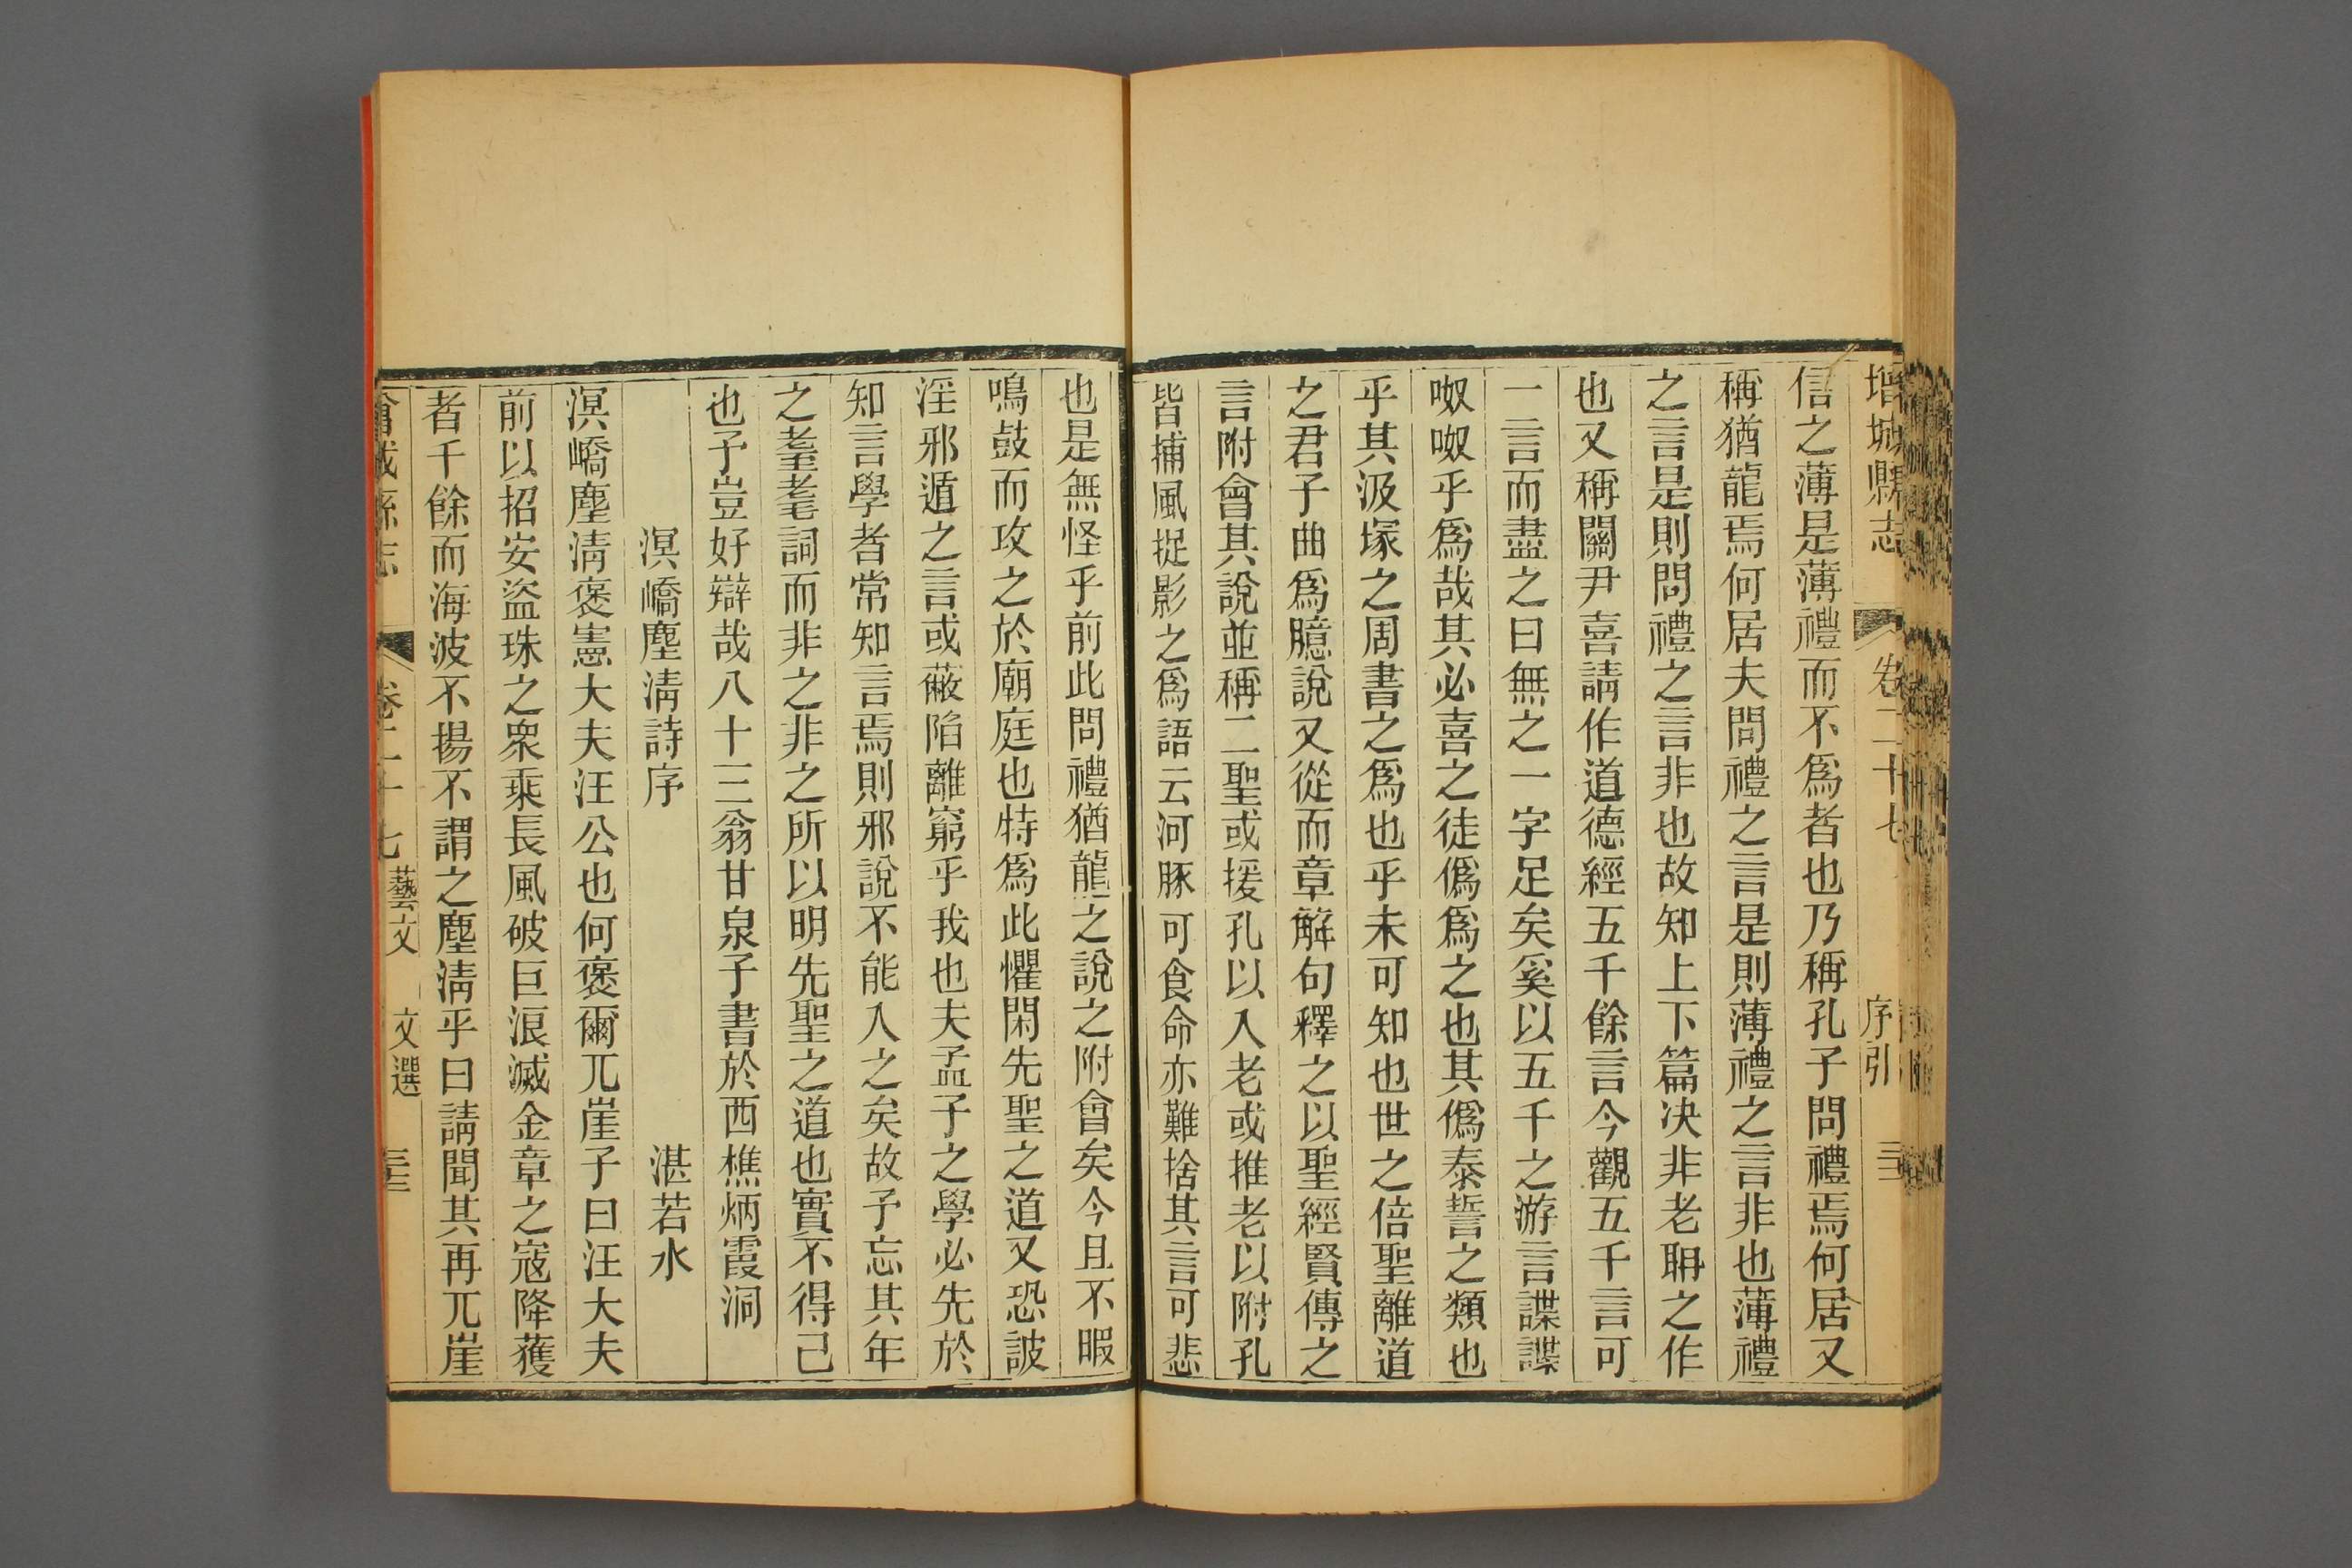 增城縣志 卷二十七 序引 三二
信之薄是薄禮而不爲者也乃稱孔子問禮焉何居又
稱猶龍焉何居夫問禮之言是則薄禮之言非也薄禮
之言是則問禮之言非也故知上下篇决非老聃之作
也又稱關尹喜請作道德經五千餘言今觀五千言可
一言而盡之曰無之一字足矣奚以五千之游言諜諜
呶呶乎爲哉其必喜之徒僞爲之也其僞泰誓之類也
乎其汲塚之周書之爲也乎未可知也世之倍聖離道
之君子曲爲臆說又從而章解句釋之以聖經賢傳之
言附會其說並稱二聖或援孔以入老或推老以附孔
皆捕風捉影之爲語云河豚可食命亦難捨其言可悲
也是無怪乎前此問禮猶龍之說之附會矣今且不暇
鳴鼓而攻之於廟庭也特爲此懼閑先聖之道又恐詖
淫邪遁之言或蔽陷離窮乎我也夫孟子之學必先於
知言學者常知言焉則邪說不能入之矣故予忘其年
之耋耄詞而非之非之所以明先聖之道也實不得已
也予豈好辯哉八十三翁甘泉子書於西樵炳霞洞
溟嶠塵淸詩序 湛若水
溟嶠塵淸褒憲大夫汪公也何褒爾兀崖子曰汪大夫
前以招安盜珠之衆乘長風破巨浪滅金章之寇降獲
者千餘而海波不揚不謂之塵淸乎曰請聞其再兀崖
卷二十七 藝文 文選 三三